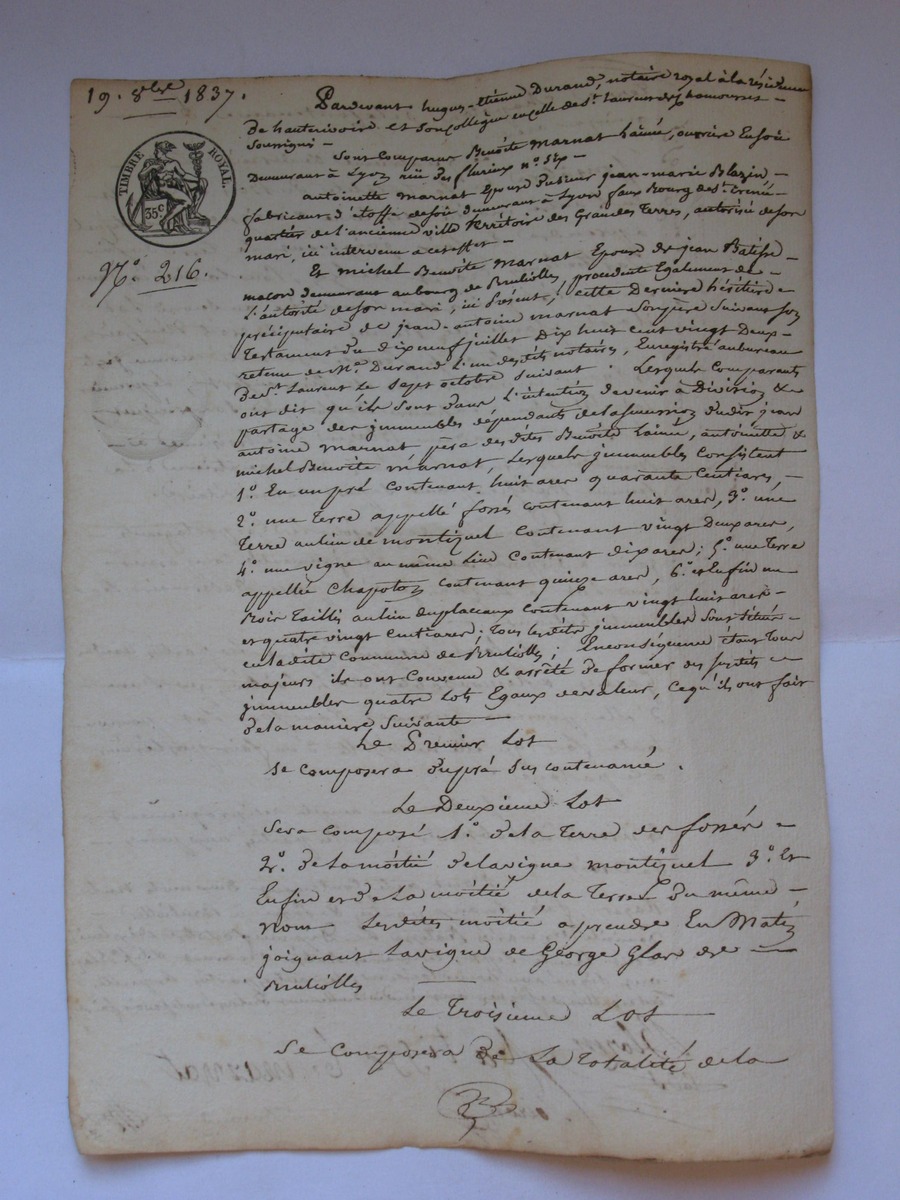 19. 8bre 1837.
TIMBRE ROYAL.
35c
No. 216.
Pardevant hugues-étienne Durand, notaire royal à la résidence
De hauterivoire et son collègue en celle de St. Laurent de Chamousset
Soussignés —
Sont Comparus Benoîte Marnat L'ainée, ouvrière En soie
Demeurant à Lyon rüe des fleurieux no. six —
antoinette Marnat Epouse du Sieur jean-marie Blazin
fabricant d'étoffe de soie demeurant à Lyon faux Bourg de St. irénée
quartier de l'ancienne ville territoire des Grandes Terres, autorisée de son
mari, ici intervenu a cet effet —
Et michel Benoîte Marnat Epouse de jean Batisse
maçon demeurant au bourg de Brullioles, procédante Egalement de
L'autorité de son mari, ici présent; cette Dernière héritière
préciputaire de jean-antoine marnat son père suivant son
Testament du dix neuf juillet Dix huit cent vingt Deux
retenu de Me. Durand L'un desdits notaires, Enregistré au bureau
De St. Laurent Le sept octobre suivant. Lesquels Comparants
ont dit qu'ils sont dans L'intention de venir à Division &
partage des immeubles dépendants de la succession dudit jean
antoine marnat père desdites Benoîte L'ainée, antoinette &
michel Benoite marnat, Lesquels immeubles Consistent
1o. En un pré Contenant huit ares quarante Centiares, —
2o. une Terre appellé fossés contenant huit ares, 3o. une
Terre au lieu de montizuel Contenant vingt Deux ares,
4o. une vigne au même Lieu Contenant dix ares; 5o. une Terre
appellée Chapoton contenant quinze ares, 6o. et Enfin un
Bois Taillis au lieu du placeaux Contenant vingt huit ares
et quatre vingt centiares; tous lesdits immeubles sont situés
en ladite Commune de Brullioles; En conséquence étant Tous
majeurs ils ont Convenu & arrêté De former des susdits
immeubles quatre Lots Egaux de valeur, ce qu'ils ont fait
de la manière suivante —
Le Premier Lot
se composera du pré sus contenancé.
Le Deuxieme Lot
Sera composé 1o. de la Terre des fossés
2o. de La moitié de la vigne montizuel 3o. Et
Enfin et de La moitié de la Terre du même
nom Lesdites moitié a prendre En Matin
joignant La vigne de George Glas de
Brullioles
Le Troisieme Lot
Se Composera De La Totalité de la